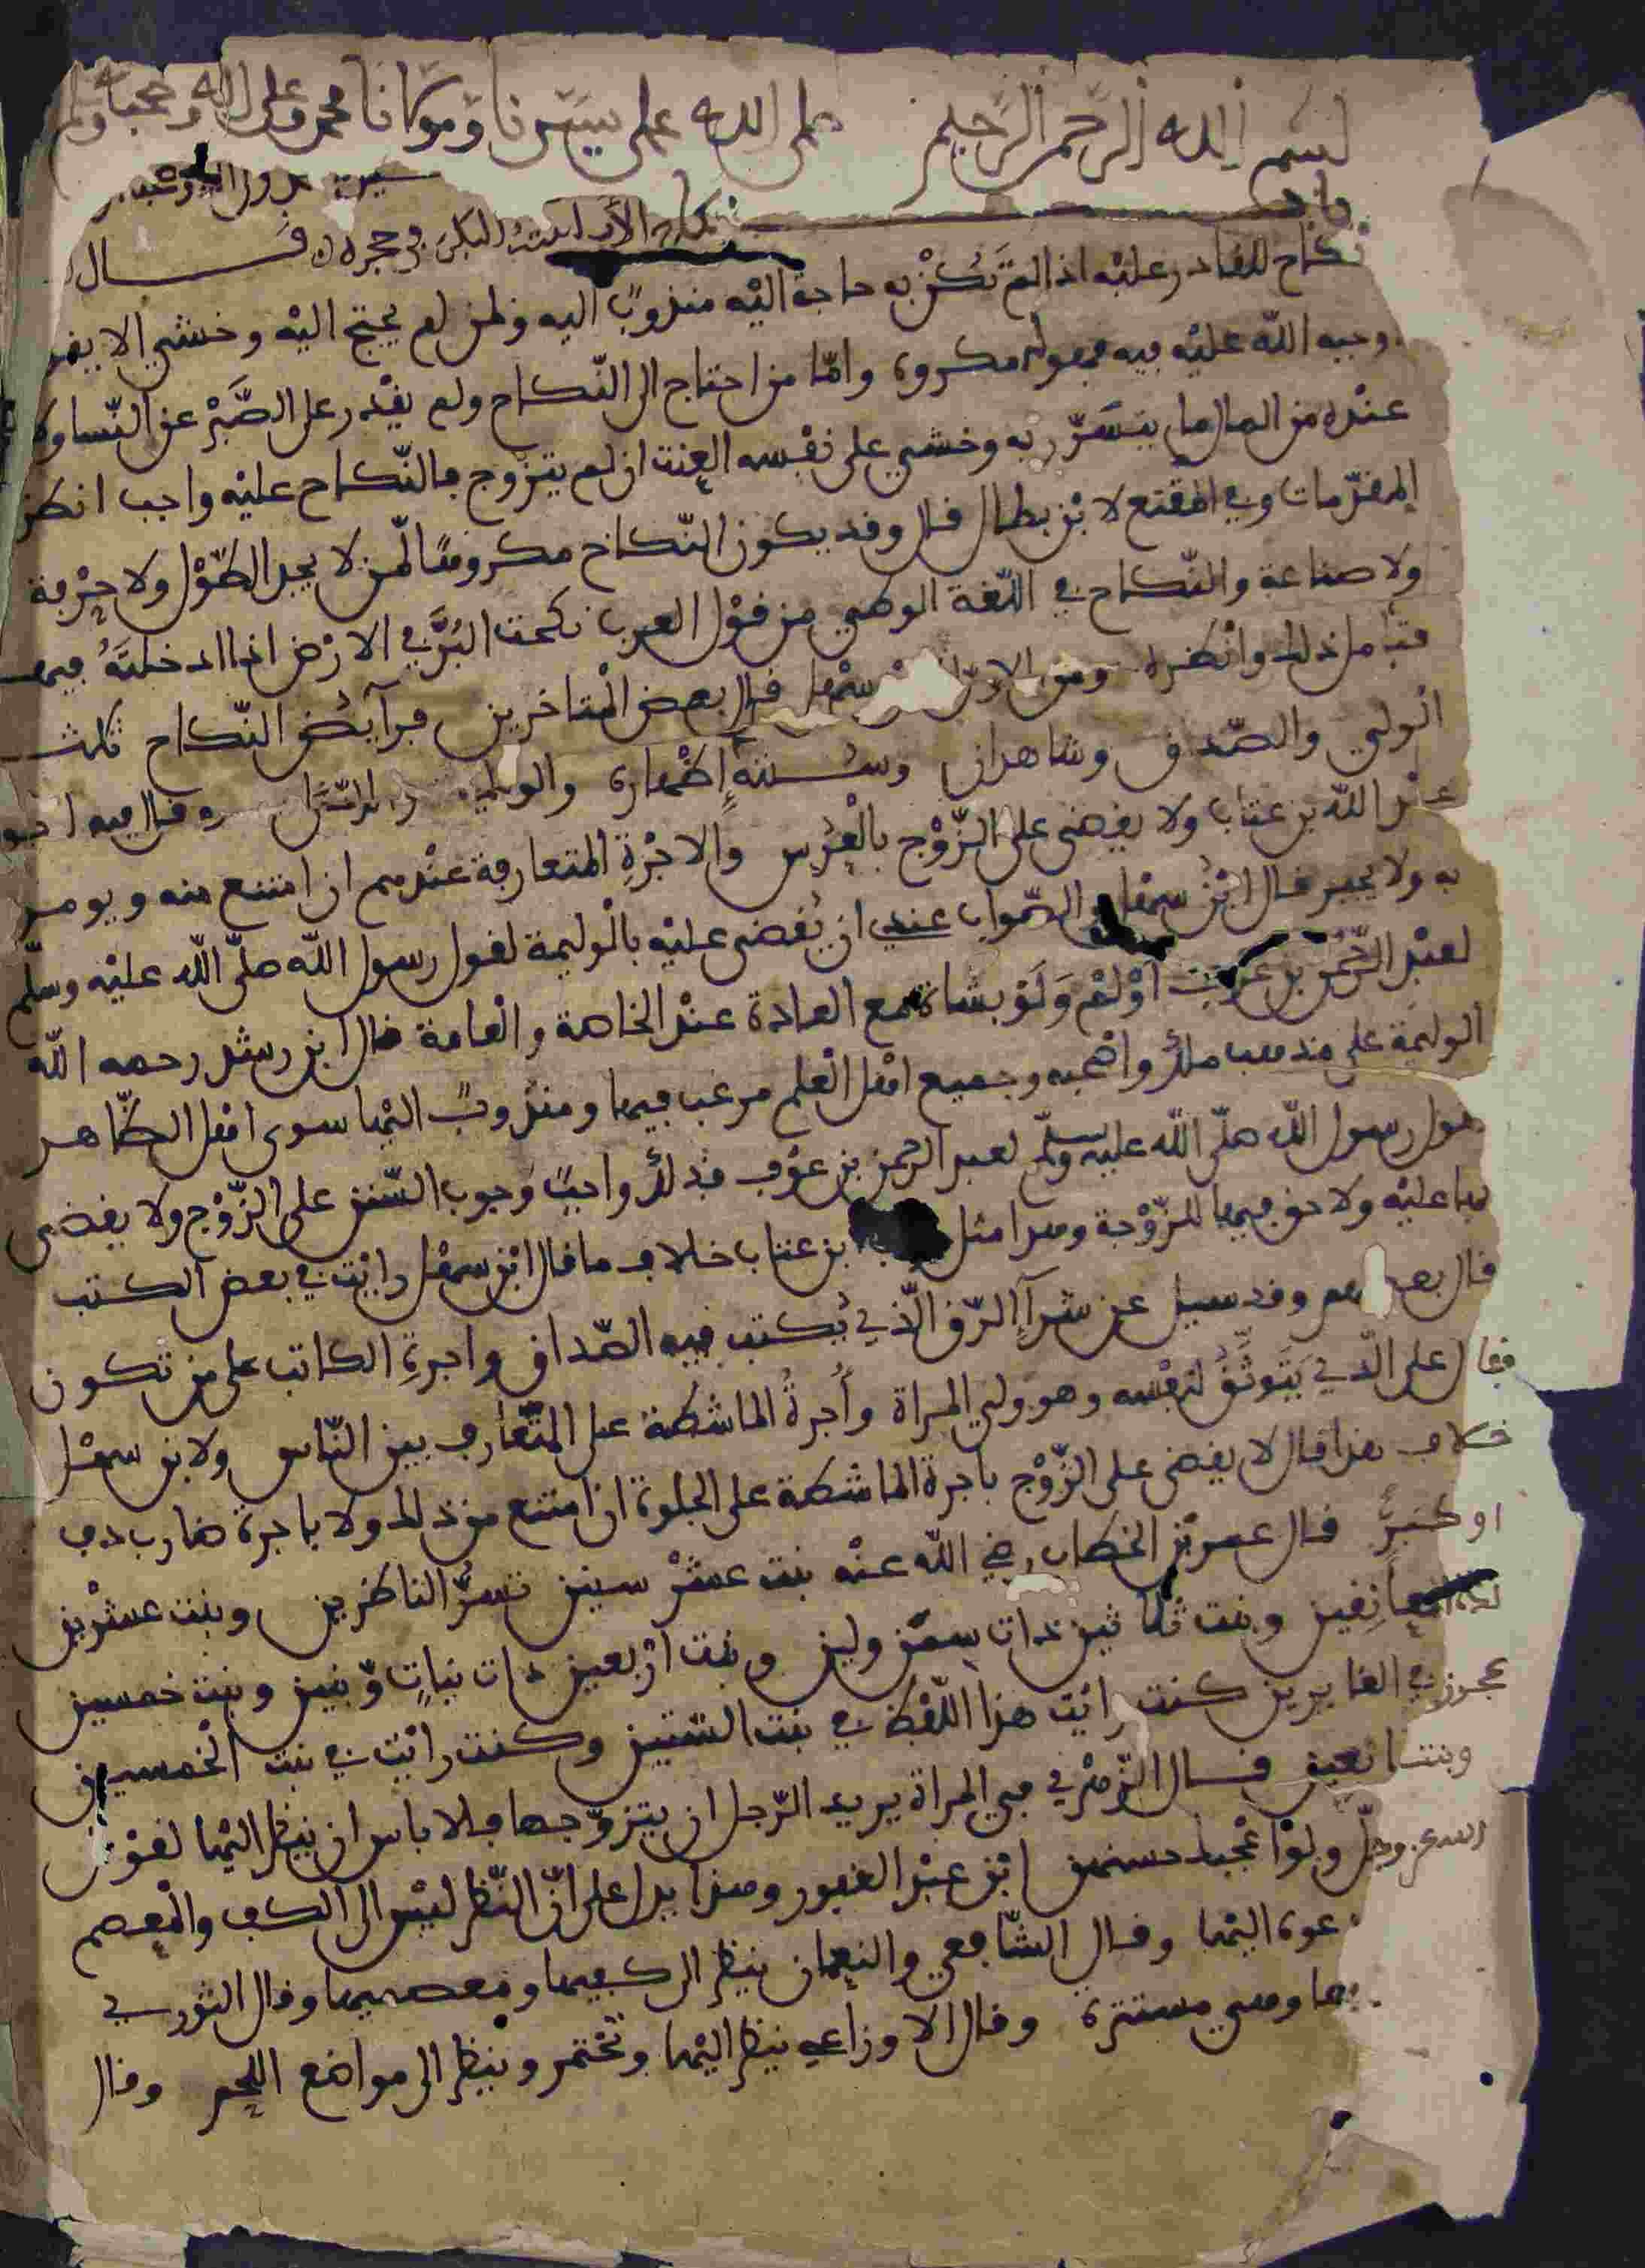 بسم الله الرحمن الرحيم صلى الله على سيدنا ومولانا محمد وعلى اله وصحبه وسلم
نكاح الأب ابنته البكر في حجره قال
نكاح للقادر عليه اذا لم تكن به حاجة اليه مندوبٌ اليه ومن لم يحتج اليه وخشي الا يقوم
وجبه الله عليه فيه فهو له مكروه واما من احتاج الى النّكاح ولم يقدر على الصّبر عن النّسا ولا
عنده من المال ما يتسرّر به وخشي على نفسه العنت ان لم يتزوج فالنّكاح عليه واجب انظر
المقدّمات وفي المقنع لابن بطال قال وقد يكون النّكاح مكروهًا لمن لا يجد الطّول ولا حِرفة
ولا صناعة والنّكاح في اللّغة الوطي من قول العرب نكحت البُرَّ في الارض اذا ادخلتَهُ فيها
فتامل ذلك وانظره ومن سهل قال بعض المتاخرين فرآيض النّكاح ثلث
الولي والصّداق وشاهدان وسنته اظهاره والوليمة قال فيه ابو
عبد الله بن عتاب ولا يقضى على الزّوج بالعُرس والاجرةِ المتعارفة عندهم ان امتنع منه ويومر
به ولا يجبر قال ابن سهل الصّواب عندي ان يُقضى عليه بالوليمة لقول رسول الله صلّى الله عليه وسلّم
لعبد الرّحمن بن عوف اوْلِمْ وَلَوْ بشاة مع العادة عند الخاصة والعامة قال ابن رشد رحمه الله
الوليمة على مذهب ملك واصحبه وجميع اهل العلم مرغب فيها ومندوبٌ اليها سوى اهل الظّاهر
لقول رسول الله صلّى الله عليه وسلّم لعبد الرحمن بن عوف فذلك واجبٌ وجوب السّنن على الزّوج ولا يقضى
بها عليه ولا حق فيها للزّوجة وهذا مثل بن عتاب خلاف ما قال ابن سهل رايت في بعض الكتب
قال بعضهم وقد سيل عن شرآ الرّق الّذي يُكتب فيه الصّداق واجرةِ الكاتب على من تكون
فقال على الّذي يَتَوثَّقُ لنفسه وهو ولي المراة وأُجرةُ الماشطة على المتعارف بين النّاس ولابن سهل
خلاف هذا قال لا يقضى على الزّوج باجرة الماشطة على الجلوة ان امتنع من ذلك ولا باجرة ضارب دف
او كَبَرٍ قال عمر بن الخطاب رضي الله عنه بنت عشر سنين تسرّ الناظرين وبنت عشرين
للمعانقين وبنت ثلاثين ذات سِمَن ولين وبنت اربعين ذات بناتٍ وّبنين وبنت خمسين
عجوز في الغابرين كنت رايت هذا اللّفظ في بنت الستين وكنت رايت في بنت الخمسين
قال الزّهري في المراة يريد الرّجل ان يتزوّجها فلا باس ان ينظر اليها لقول
الله عز وجلّ ولوْ اعْجبك حسنهن ابن عبد الغفور وهذا يدل على انّ النّظر ليس الى الكف والمعصم
عوة اليها وقال الشّافعي والنعمان ينظر الى كفيها ومعصميها وقال الثوري
وهي مستترة وقال الاوزاعي ينظر اليها وتختمر وينظر الى مواضع اللحم وقال